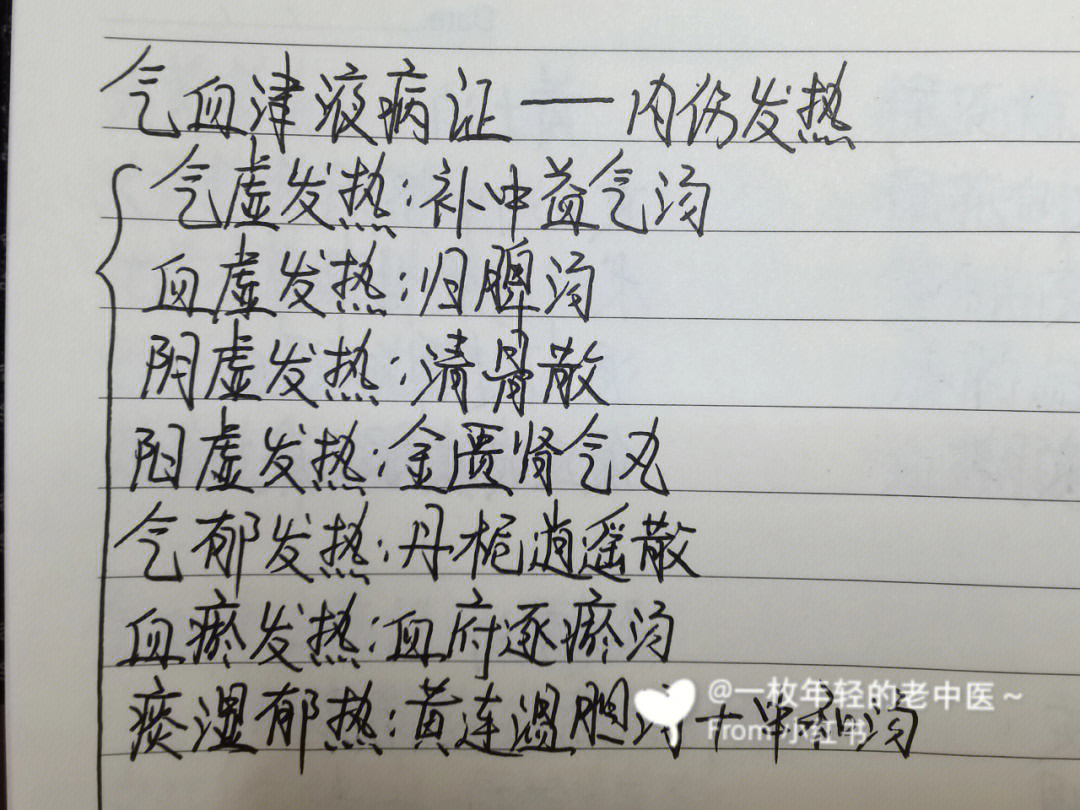 气血津液病证——内伤发热
气虚发热:补中益气汤
血虚发热:归脾汤
阴虚发热:清骨散
阳虚发热:金匮肾气丸
气郁发热:丹栀逍遥散
血瘀发热:血府逐瘀汤
痰湿郁热:黄连温胆汤+中和汤
@一枚年轻的老中医~
From 小红书